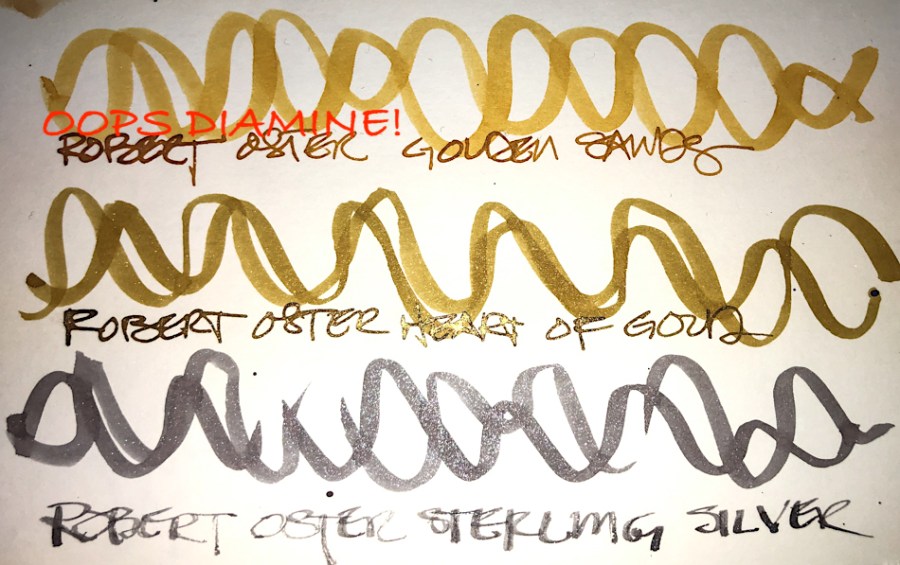 OOPS DIAMINE!
ROBERT OSTER GOLDEN SANDS
ROBERT OSTER HEART OF GOLD
ROBERT OSTER STERLING SILVER